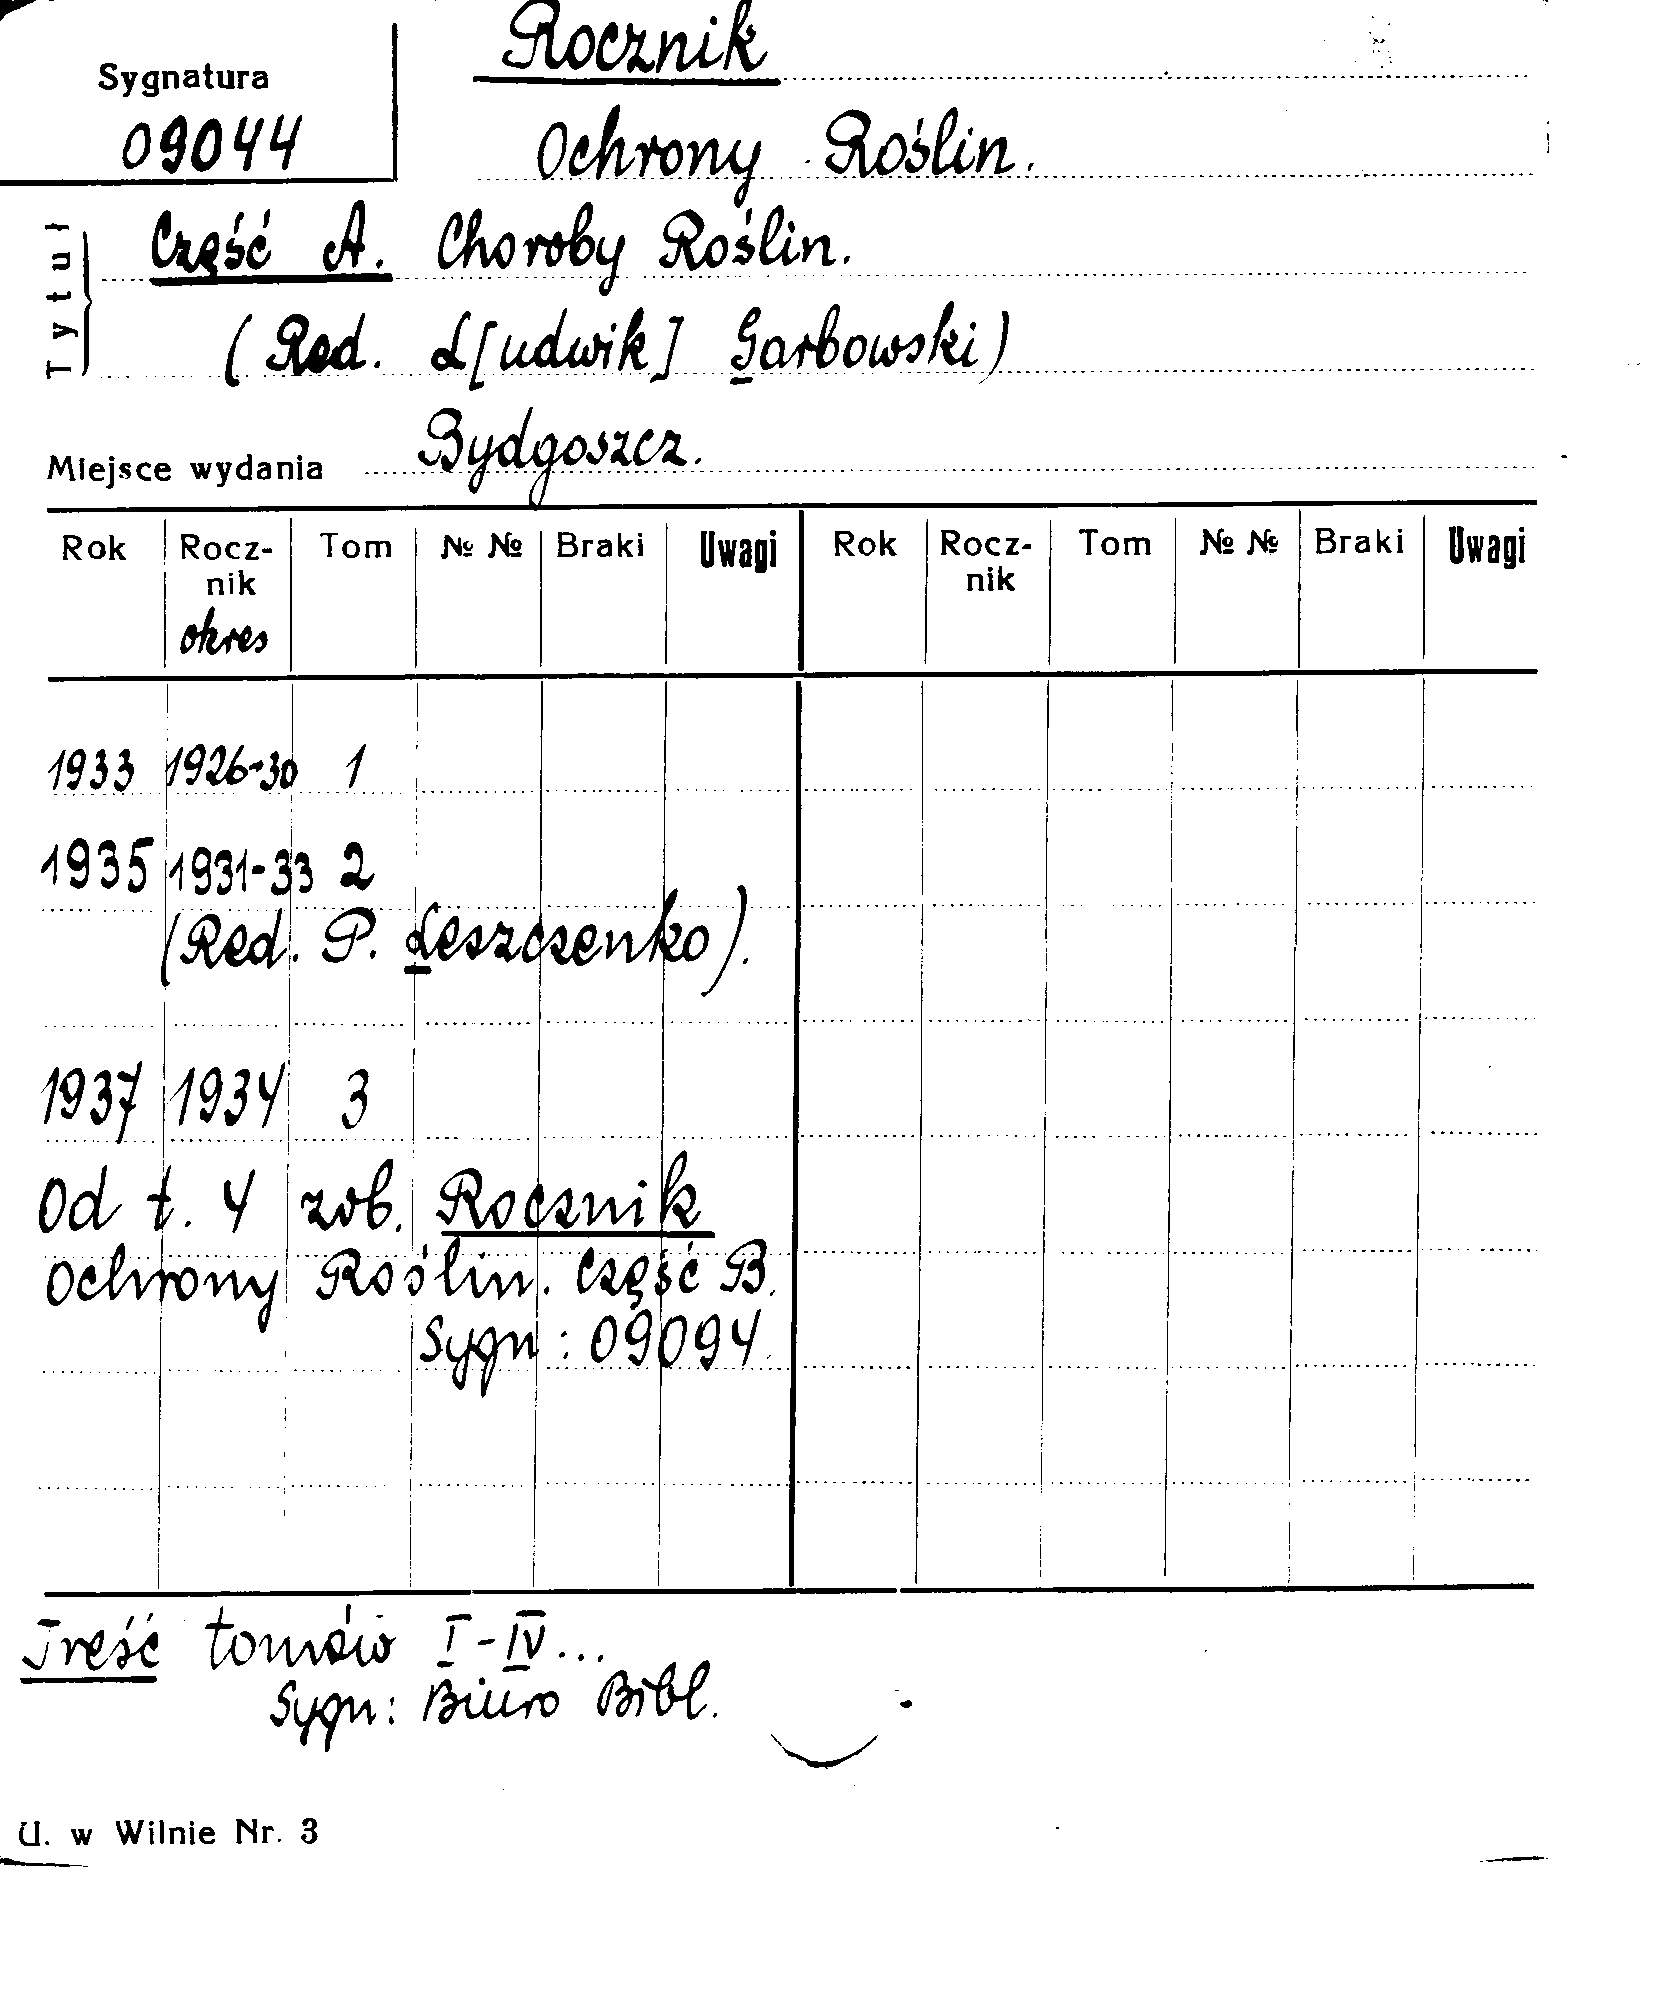 Rocznik
Sygnatura
09044
Ochrony Roślin.
Tytuł
Część A. Choroby Roślin.
(Red. L[udwik] Garbowski)
Miejsce wydania Bydgoszcz.
Rok Rocz- Tom № № Braki Uwagi Rok Rocz- Tom № № Braki Uwagi
nik nik
okres
1933 1926-30 1
1935 1931-33 2
(Red. P. Leszczenko).
1937 1934 3
Od t. 4 zob. Rocznik
Ochrony Roślin. Część B.
Sygn: 09094.
Treść tomów I-IV...
Sygn: Biuro Bibl.
U. w Wilnie Nr. 3